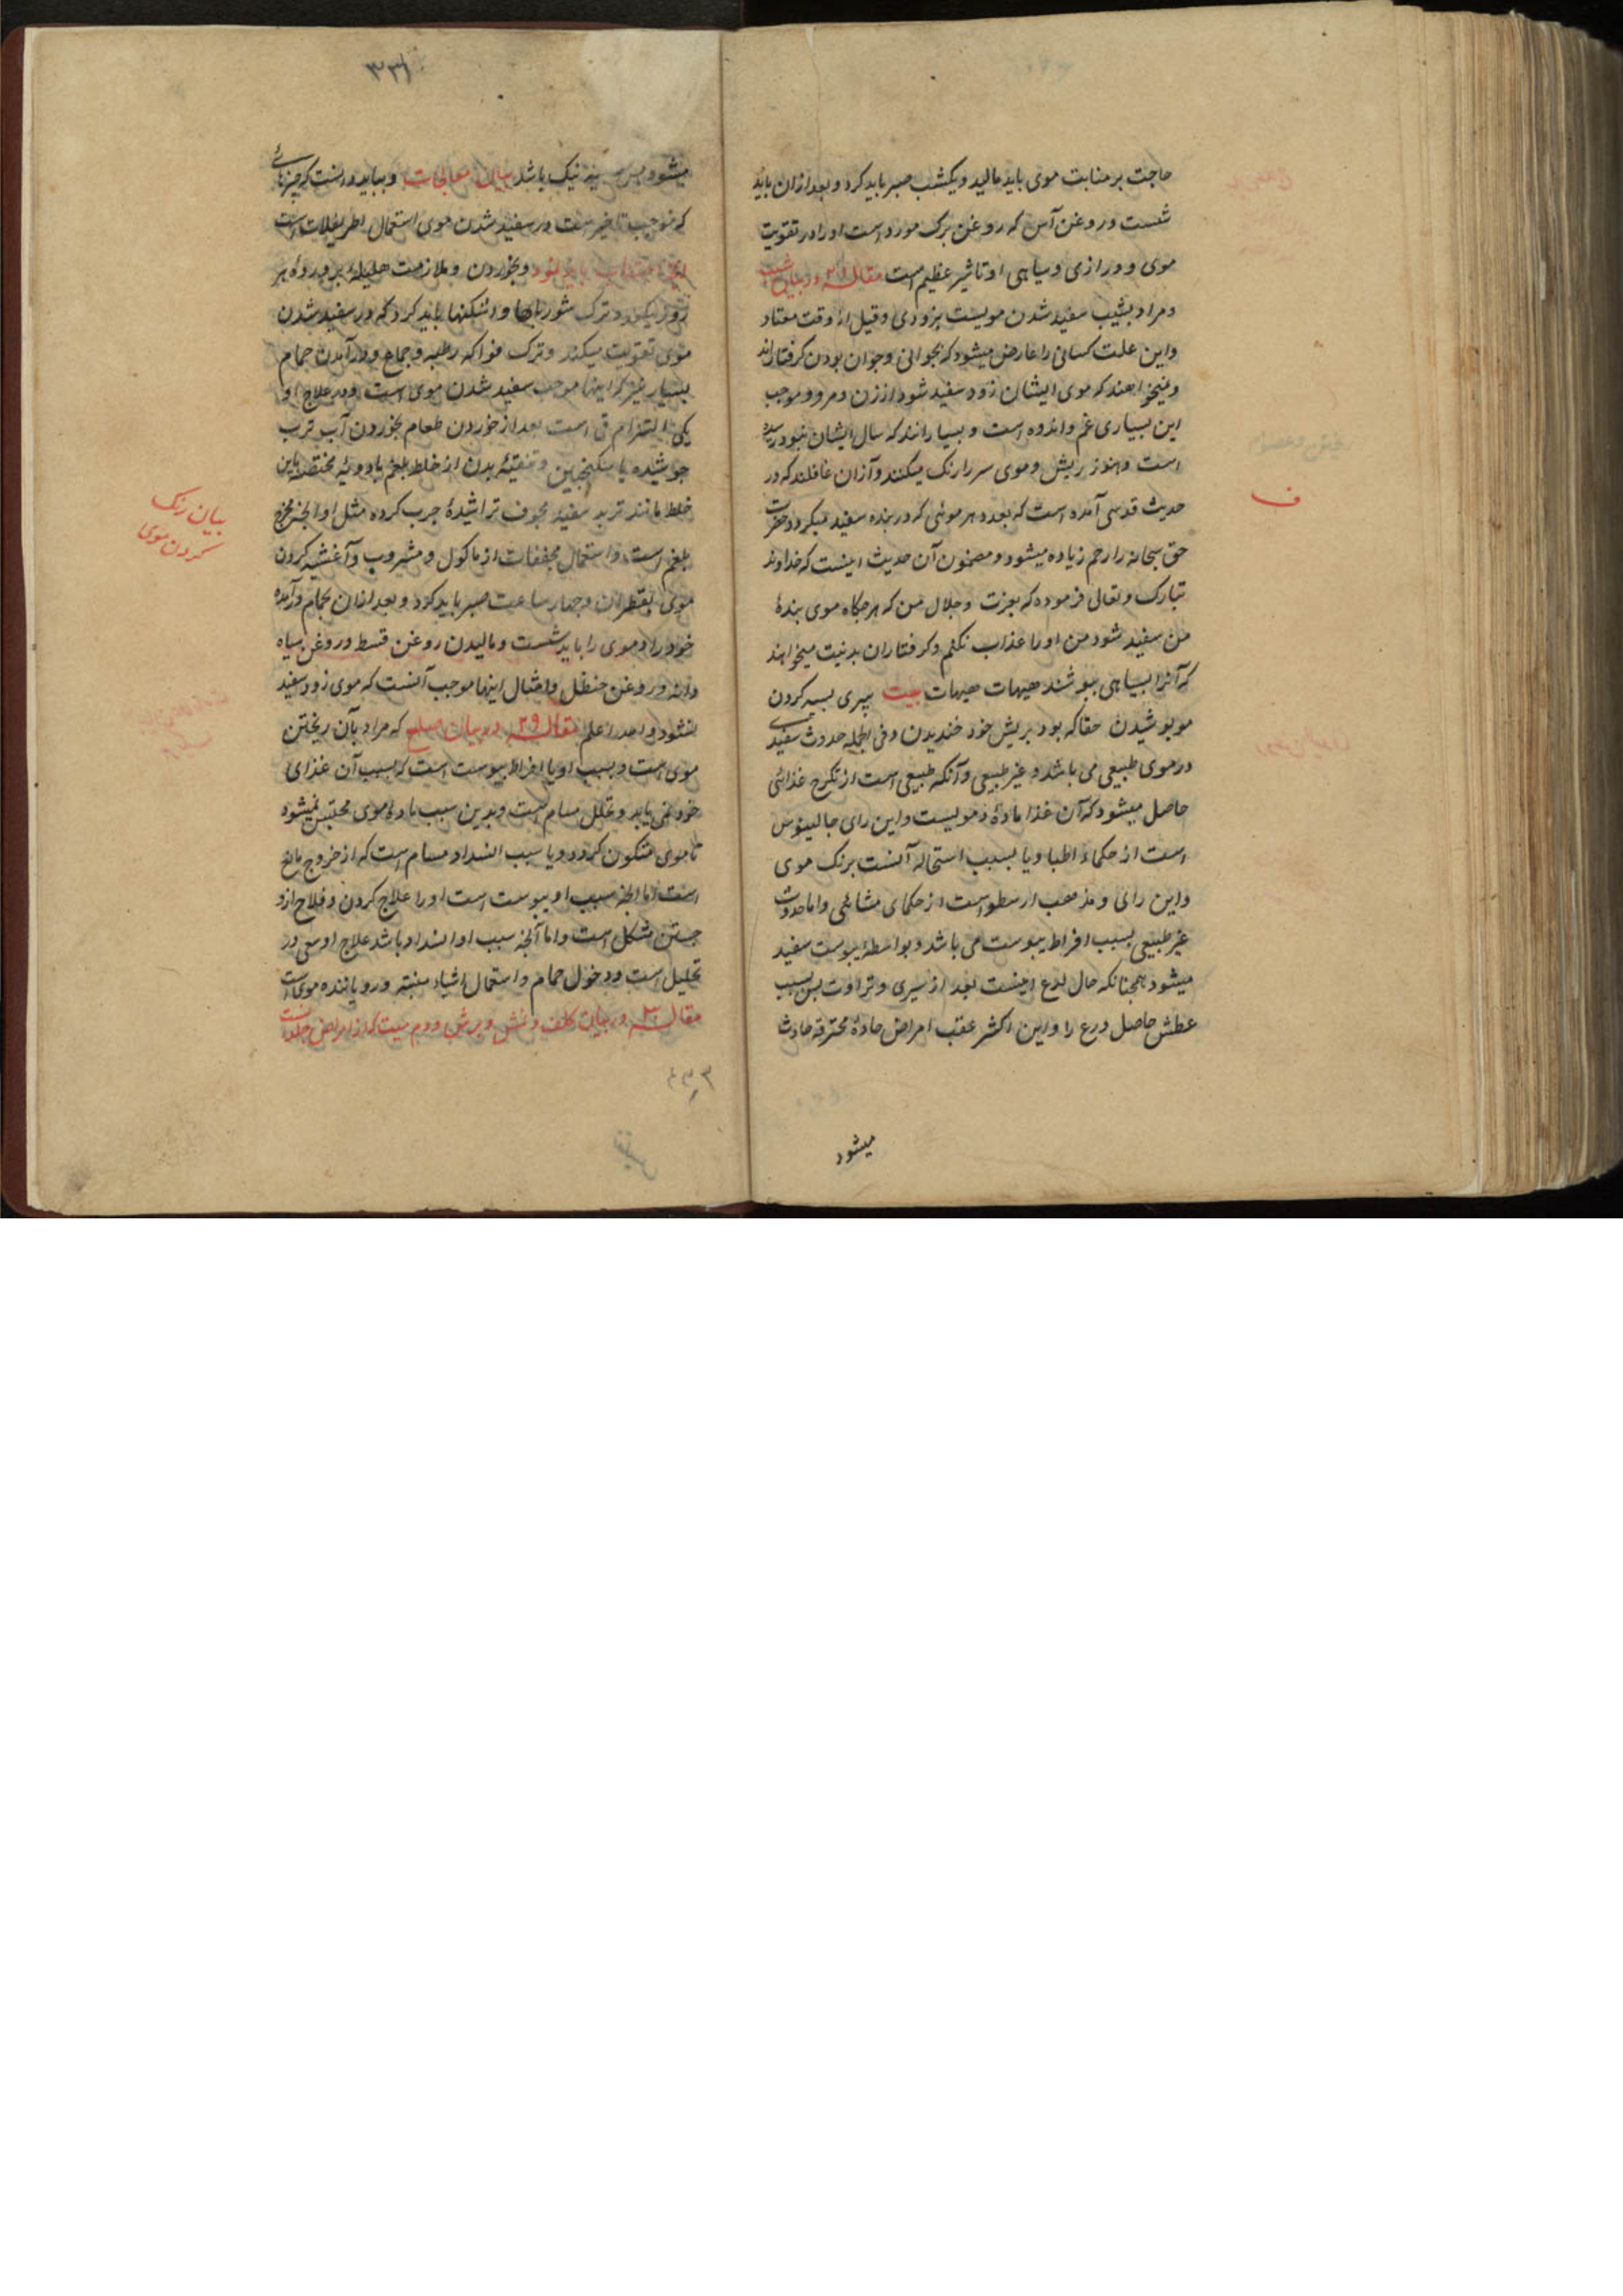 حاجت بر منابت موی باید مالید و یکشب صبر باید کرد و بعد ازان باید
شست و روغن آس که روغن برک مورد است او را در تقویت
موی و درازی و سیاهی او تاثیر عظیم است مقاله ۲۸ در بیان شیب
و مراد بشیب سفید شدن مویست بزودی و قبل از وقت معتاد
و این علت کسانی را عارض میشود که بجوانی و جوان بودن کرفتاراند
و نمیخواهند که موی ایشان زود سفید شود از زن و مرد و موجب
این بسیاری غم و اندوه است و بسیارانند که سال ایشان بنود رسیده
است و هنوز ریش و موی سر را رنک میکنند و ازان غافلند که در
حدیث قدسی آمده است که بعدد هر موئی که در بنده سفید میکردد حضرت
حق سبحانه را رحم زیاده میشود و مضمون آن حدیث اینست که خداوند
تبارک و تعالی فرموده که بعزت و جلال من که هرکاه موی بندهٔ
من سفید شود من او را عذاب نکنم و کرفتاران بدنیت میخواهند
که آنرا بسیاهی بپوشند هیهات هیهات بیت پیری بسیه کردن
مو پوشیدن حقا که بود بریش خود خندیدن و فی الجمله حدوث سفیدی
در موی طبیعی می باشد و غیر طبیعی و آنکه طبیعی است از تکرج غذائی
حاصل میشود که آن غذا مادهٔ دمویست و این رای جالینوس
است از حکماء اطبا و یا بسبب استحاله آنست برنک موی
و این رای و مذهب ارسطو است از حکمای مشائی و اما حدوث
غیر طبیعی بسبب افراط یبوست می باشد و بواسطهٔ یبوست سفید
میشود همچنانکه حال زرع اینست بعد از سیری و تراوت پس بسبب
عطش حاصل زرع را و این اکثر عقب امراض حادهٔ محترقه حادث
میشود
ف
۳۳۱
میشود پس نیک باشد بیان معالجات و بباید دانست که چیزهائی
که موجب تاخیر است در سفید شدن موی استعمال اطریفلات است
باید نمود و بخوردن و ملازمت هلیلهٔ پرورده هر
روز یکعدد و ترک شوربایها و اشکنها باید کرد که در سفید شدن
موی تقویت میکند و ترک فواکه رطبه و جماع و در آمدن حمام
بسیار نیز که اینها موجب سفید شدن موی است و در علاج او
یکی التزام قی است بعد از خوردن طعام بخوردن آب ترب
جوشیده با سکنجبین و تنقیهٔ بدن از خلط بلغم بادویهٔ مختصه باین
خلط مانند تربد سفید مجوف تراشیدهٔ چرب کرده مثل او آنچه مخرج
بلغم است و استعمال مجففات از ماکول و مشروب و آغشته کردن
موی بقطران و چهار ساعت صبر باید کرد و بعد ازان بحمام درآمده
خود را و موی را باید شست و مالیدن روغن قسط و روغن سیاه
دانه و روغن حنظل و امثال اینها موجب آنست که موی زود سفید
نشود و الله اعلم مقاله ۲۹ در بیان صلع که مراد بآن ریختن
موی است و سبب او یا افراط یبوست است که بسبب آن غذای
خود نمی یابد و تخلل مسام است و بدین سبب مادهٔ موی محتبس نمیشود
تا موی متکون کردد و یا سبب انسداد مسام است که از خروج مانع
است اما آنچه سبب او یبوست است او را علاج کردن و فلاح ازو
جستن مشکل است و اما آنچه سبب او انسداد باشد علاج او سعی در
تحلیل است و دخول حمام و استعمال اشیاء منبته و رویاننده موی است
مقاله ۳۰ در بیان کلف و نمش و برش و دم میت که از امراض جلد است
بیان رنک
کردن موی